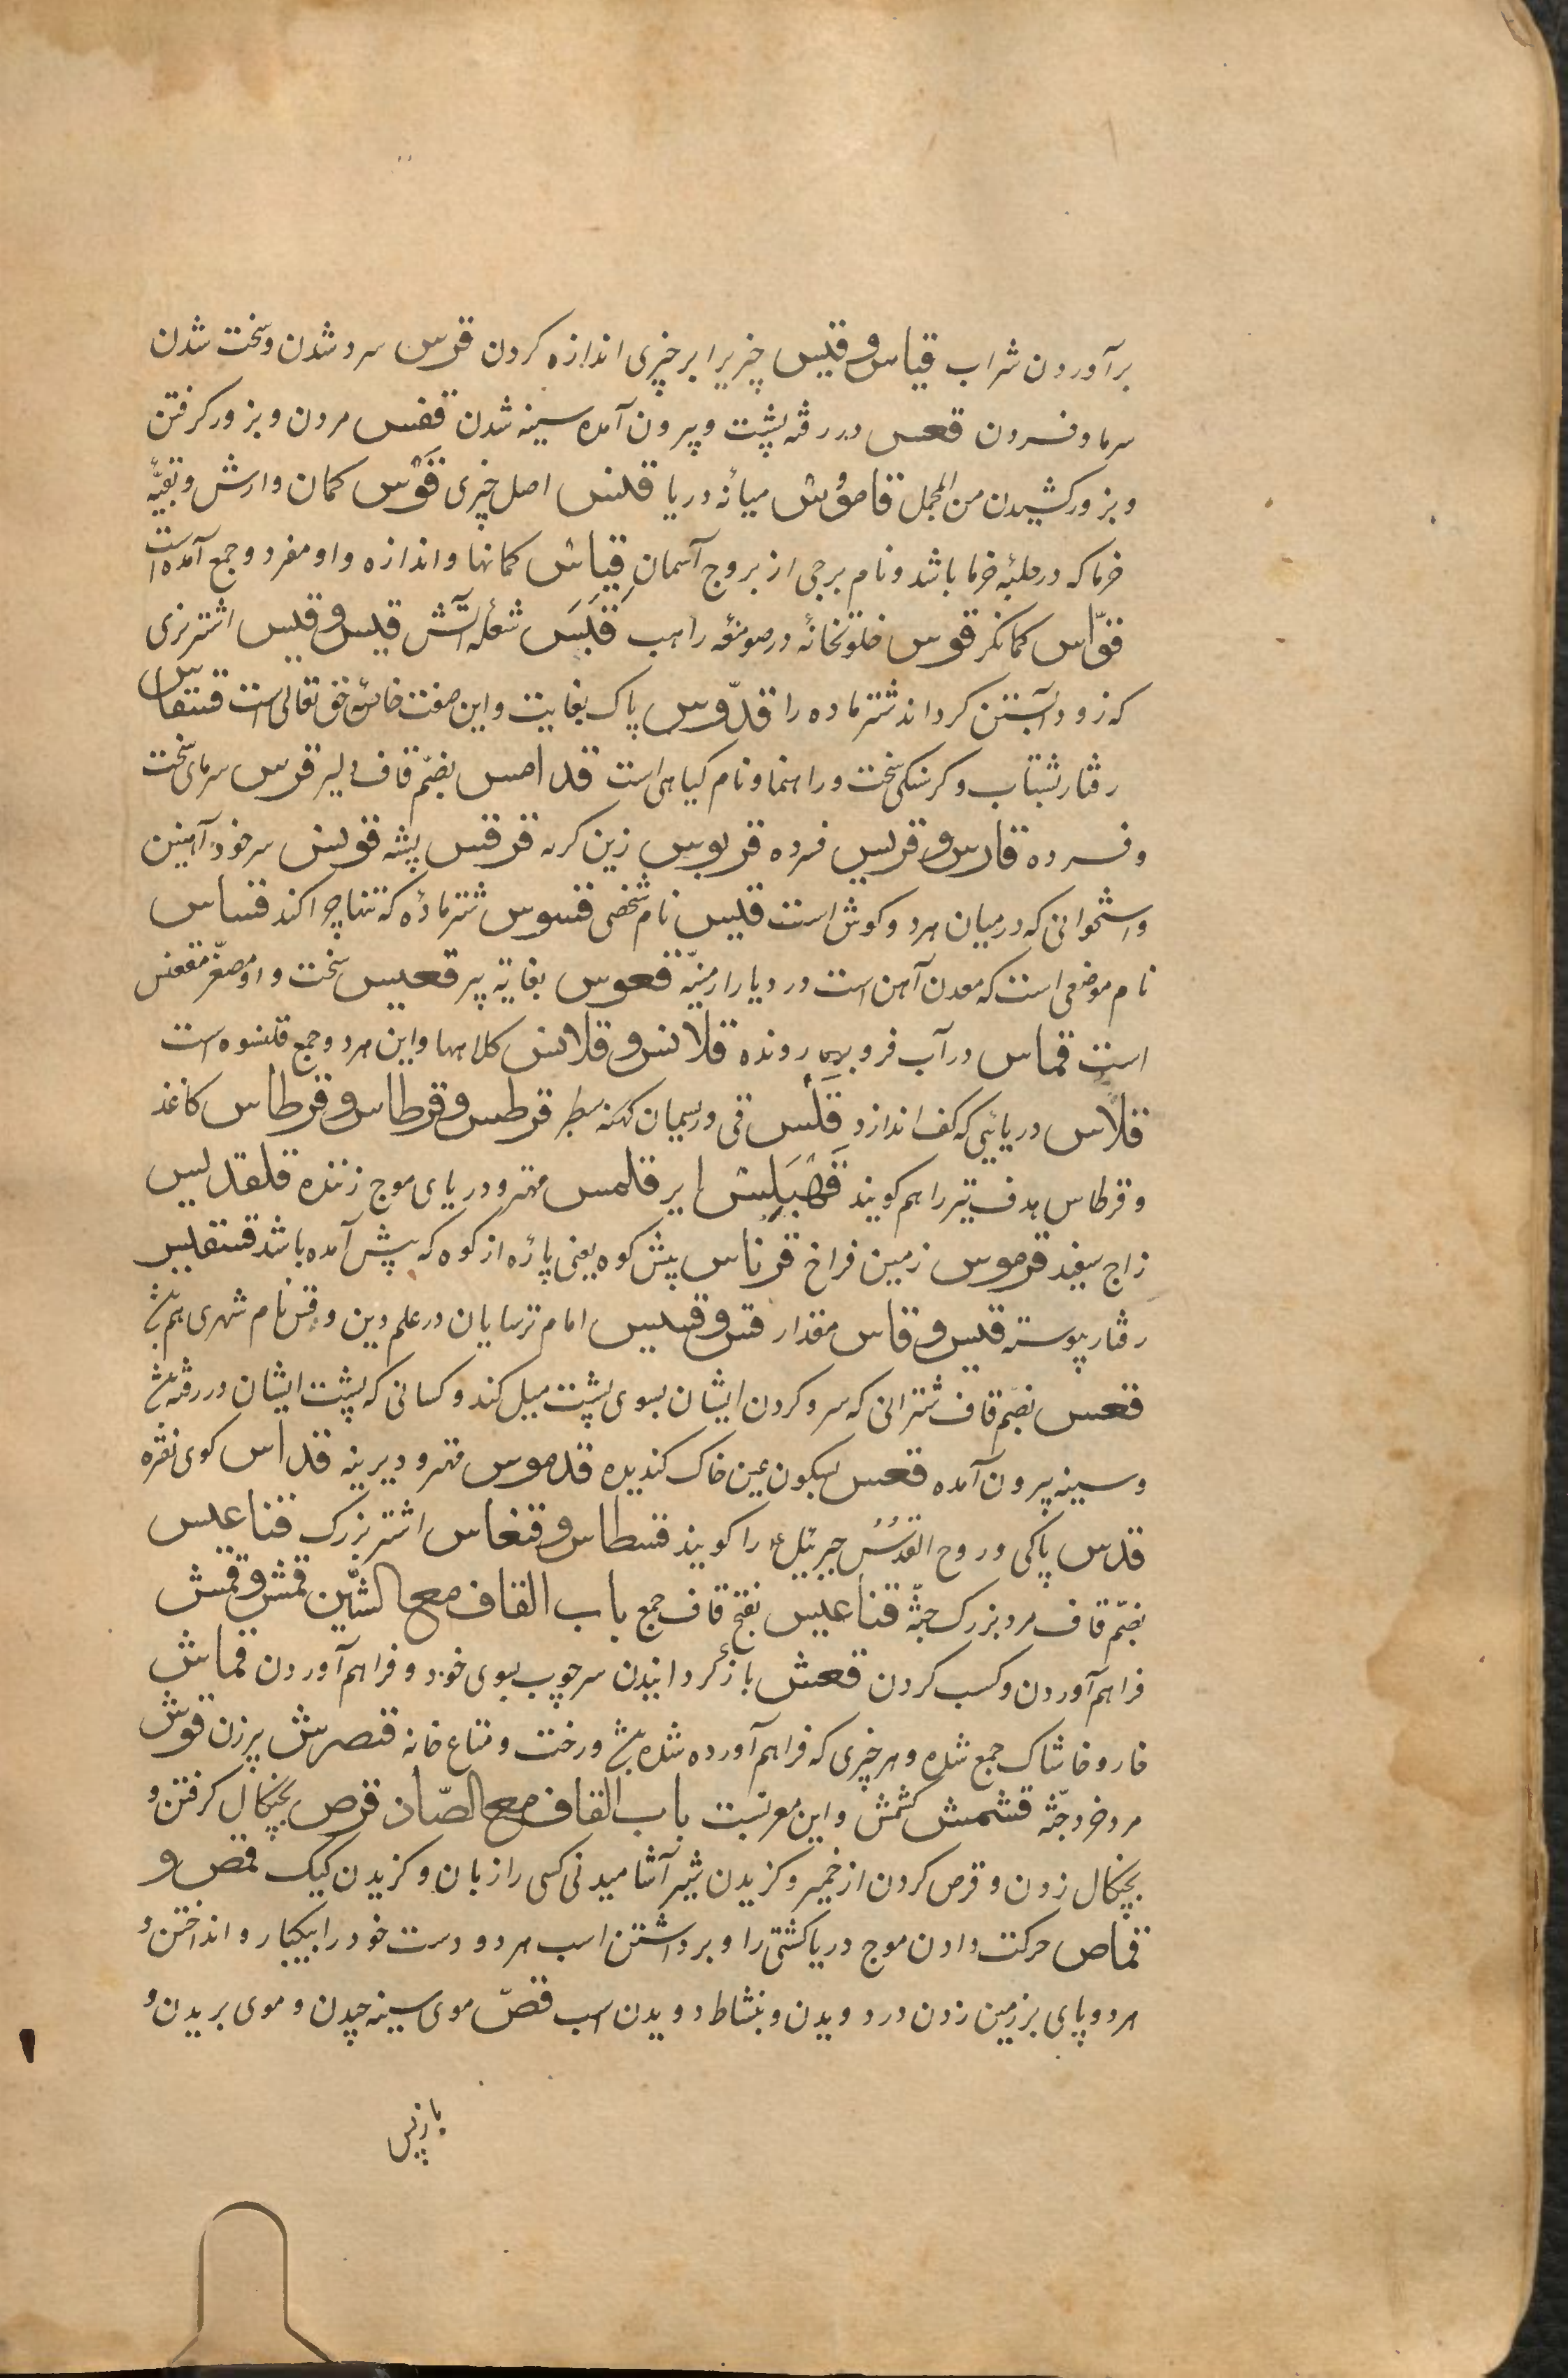 برآوردن شراب قیاس و قیس چیزیرا برچیزی اندازه کردن قرس سرد شدن و سخت شدن
سرما و فسردن قعس در رفته پشت و بیرون آمده سینه شدن قفس مردن و بزور کرفتن
و بزور کشیدن من المجمل قاموس میانه دریا قنس اصل چیزی قوس کمان و ارش و بقیّه
خرما که در جلبه خرما باشد و نام برجی از بروج آسمان قیاس کمانها و اندازه و او مفرد و جمع آمده است
قوّاس کمانکر قوس خلوتخانه در صومعه راهب قبس شعله آتش قبیس و قیس اشتر نری
که زود آبستن کرداند شتر ماده را قدّوس پاک بغایت و این صفت خاصّه حق تعالی است قسقاس
رفتار بشتاب و کرسنکی سخت و راهنما و نام کیاهی است قدامس بضم قاف دلیر قرس سرمای سخت
و فسرده قارس و قریس فسرده قربوس زین کوهه قرقس پشه قونس سر خود آهنین
و استخوانی که در میان هر دو کوش اسب است قیس نام شخصی قسوس شتر ماده که تنها چرا کند قساس
نام موضعی است که معدن آهن است در دیار ارمنیّه قعوس بغایة پیر قعیس سخت و او مصغّر مقعنس
است قماس در آب فرو رونده قلانس و قلاس کلاهها و این هر دو جمع قلنسوه است
قلاس دریائی که کف اندازد قلس قی و ریسمان کهنه سطبر قرطس و قرطاس و قرطاس کاغذ
و قرطاس هدف تیر را هم کویند قهبلس ایر قلمس مهتر و دریای موج زننده قلقدیس
زاج سفید قرموس زمین فراخ قرناس پیش کوه یعنی پاره از کوه که پیش آمده باشد قسقیس
رفتار پیوسته قیس و قاس مقدار قس و قسیس امام ترسایان در علم دین و قس نام شهری هم باشد
قعس بضم قاف شترانی که سر و کردن ایشان بسوی پشت میل کند و کسانی که پشت ایشان در رفته باشد
و سینه بیرون آمده قعس بسکون عین خاک کندیده قدموس مهتر و دیرینه قداس کوی نقره
قدس پاکی و روح القدس جبرئیل ع را کویند قسطاس و قنعاس اشتر بزرک قناعیس
بضم قاف مرد بزرک جثّه قناعیس بفتح قاف جمع باب القاف مع الشین قمش و قمش
فراهم آوردن و کسب کردن قعش باز کردانیدن سر چوب بسوی خود و فراهم آوردن قماش
خار و خاشاک جمع شده و هر چیزی که فراهم آورده شده باشد و رخت و متاع خانه قنصرش پیر زن قوش
مرد خرد جثّه قشمش کشمش و این معربست باب القاف مع الصّاد قرص بچنکال کرفتن و
بچنکال زدن و قرص کردن از خمیر و کزیدن شیر آشامیدنی کسی را زبان و کزیدن کیک قمص و
قماص حرکت دادن موج دریا کشتی را و برداشتن اسب هر دو دست خود را بیکبار و انداختن و
هر دو پای بر زمین زدن در دویدن و بنشاط دویدن اسب قصّ موی سینه چیدن و موی بریدن و
بازپس